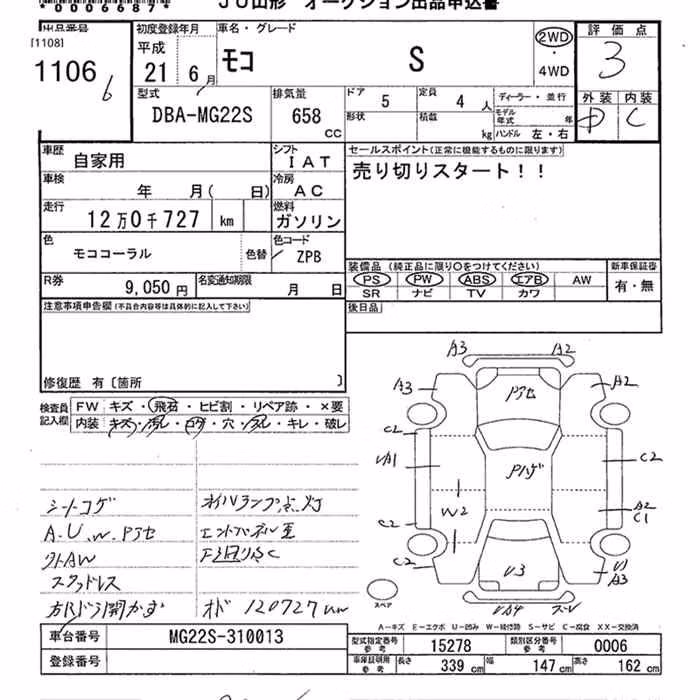 *0006687*
JU山形 オークション出品申込書
出品番号
[1108]
1106
6
初度登録年月
平成
21 6月
車名・グレード
モコ S
2WD
・
4WD
評価点
3
外装 内装
D C
型式
DBA-MG22S
排気量
658
CC
ドア 5
形状
定員 4人
積載 kg
ディーラー・並行
モデル年式 年
ハンドル 左・右
車歴
自家用
シフト
IAT
車検
年 月( 日)
冷房
AC
走行
12万0千727 km
燃料
ガソリン
色
モココーラル
色替
色コード
ZPB
R券
9,050円
名変通知期限
月 日
セールスポイント(正常に機能するものに限ります)
売り切りスタート!!
装備品 (純正品に限り○をつけてください)
PS PW ABS エアB AW
SR ナビ TV カワ
新車保証書
有・無
後日品
注意事項申告欄(不具合内容等は具体的に記入して下さい)
修復歴 有〔箇所 〕
検査員
記入欄
FW キズ・飛石・ヒビ割・リペア跡・×要
内装 キズ・汚レ・コゲ・穴・スレ・キレ・破レ
シートコゲ
A.U.W.Pアセ
外AW
スタッドレス
オイルランプ点灯
オド 120727km
A3 A2
A3 A2
Pアセ
C2
UA1
C2
Pハゲ
W2
A2
C1
C2
C2
V3
A3
スペア
A-キズ E-エクボ U-凹み W-補修跡 S-サビ C-腐食 XX-交換済
車台番号
MG22S-310013
登録番号
型式指定番号
参考
15278
類別区分番号
参考
0006
車庫証明用
参考
長さ 339 cm
幅 147 cm
高さ 162 cm